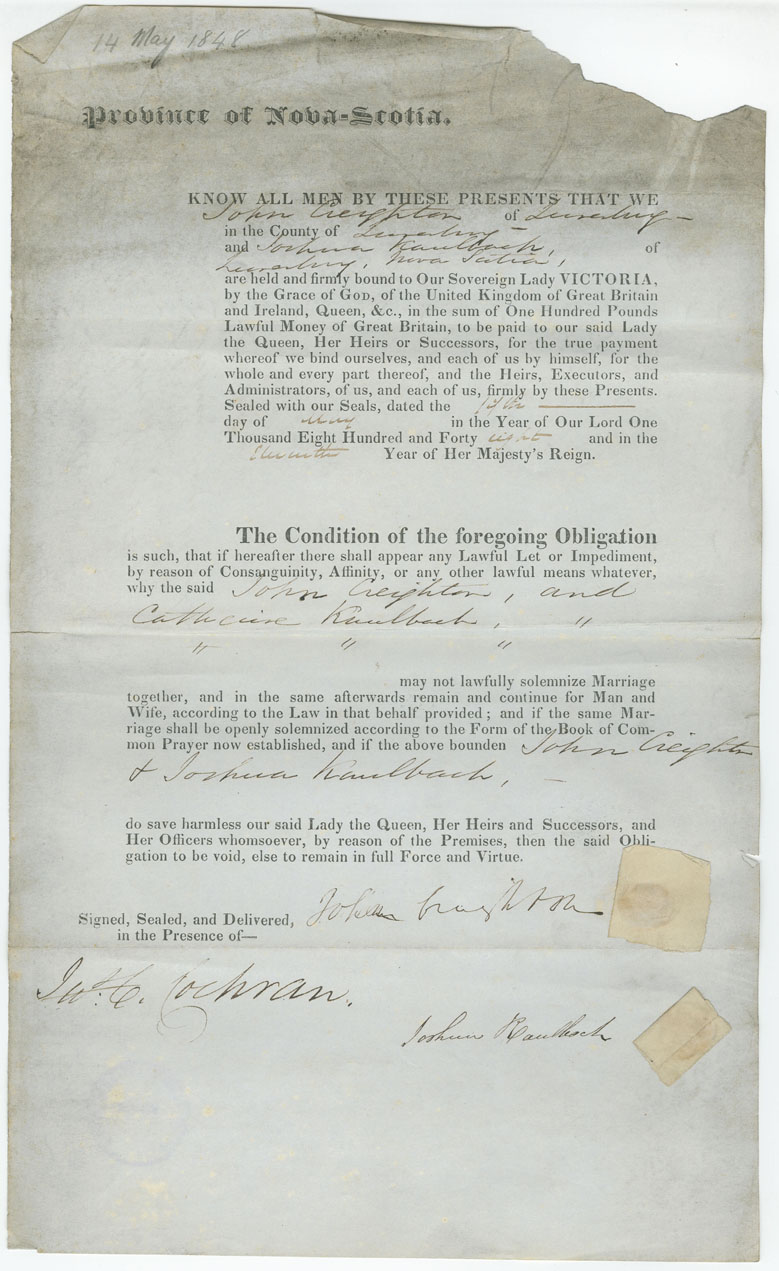 14 May 1848
Province of Nova-Scotia.
KNOW ALL MEN BY THESE PRESENTS THAT WE
John Creighton of Lunenburg –
in the County of Lunenburg –
and Joshua Kaulbach, of
Lunenburg, Nova Scotia,
are held and firmly bound to Our Sovereign Lady VICTORIA,
by the Grace of GOD, of the United Kingdom of Great Britain
and Ireland, Queen, &c., in the sum of One Hundred Pounds
Lawful Money of Great Britain, to be paid to our said Lady
the Queen, Her Heirs or Successors, for the true payment
whereof we bind ourselves, and each of us by himself, for the
whole and every part thereof, and the Heirs, Executors, and
Administrators, of us, and each of us, firmly by these Presents.
Sealed with our Seals, dated the
day of May in the Year of Our Lord One
Thousand Eight Hundred and Forty eight and in the
Eleventh Year of Her Majesty's Reign.
The Condition of the foregoing Obligation
is such, that if hereafter there shall appear any Lawful Let or Impediment,
by reason of Consanguinity, Affinity, or any other lawful means whatever,
why the said John Creighton, and
Catherine Kaulbach, "
" " "
may not lawfully solemnize Marriage
together, and in the same afterwards remain and continue for Man and
Wife, according to the Law in that behalf provided; and if the same Mar-
riage shall be openly solemnized according to the Form of the Book of Com-
mon Prayer now established, and if the above bounden John Creighton
& Joshua Kaulbach, –
do save harmless our said Lady the Queen, Her Heirs and Successors, and
Her Officers whomsoever, by reason of the Premises, then the said Obli-
gation to be void, else to remain in full Force and Virtue.
John Creighton
Signed, Sealed, and Delivered,
in the Presence of—
Jas. C. Cochran.
Joshua Kaulbach